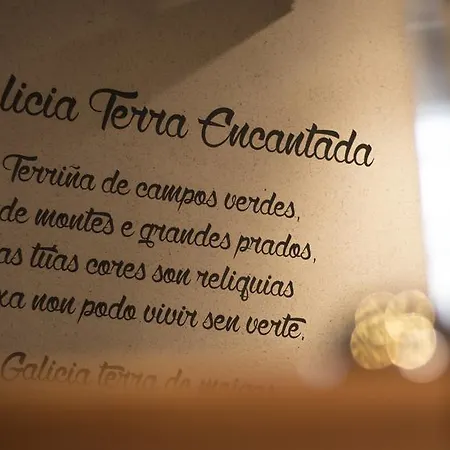 licia Terra Encantada
Terriña de campos verdes,
de montes e grandes prados,
as túas cores son reliquias
xa non podo vivir sen verte,
Galicia terra de meigas